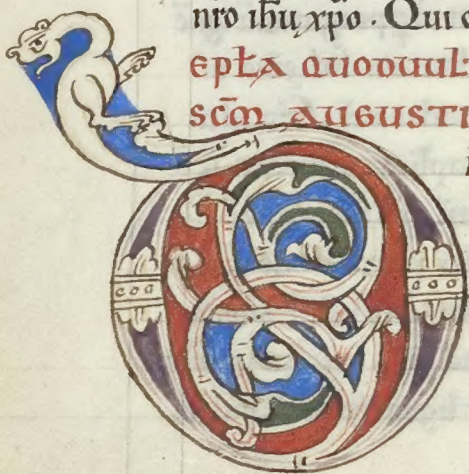 nro ihu xpo. Qui
epła quoduul
scm̄ augusti